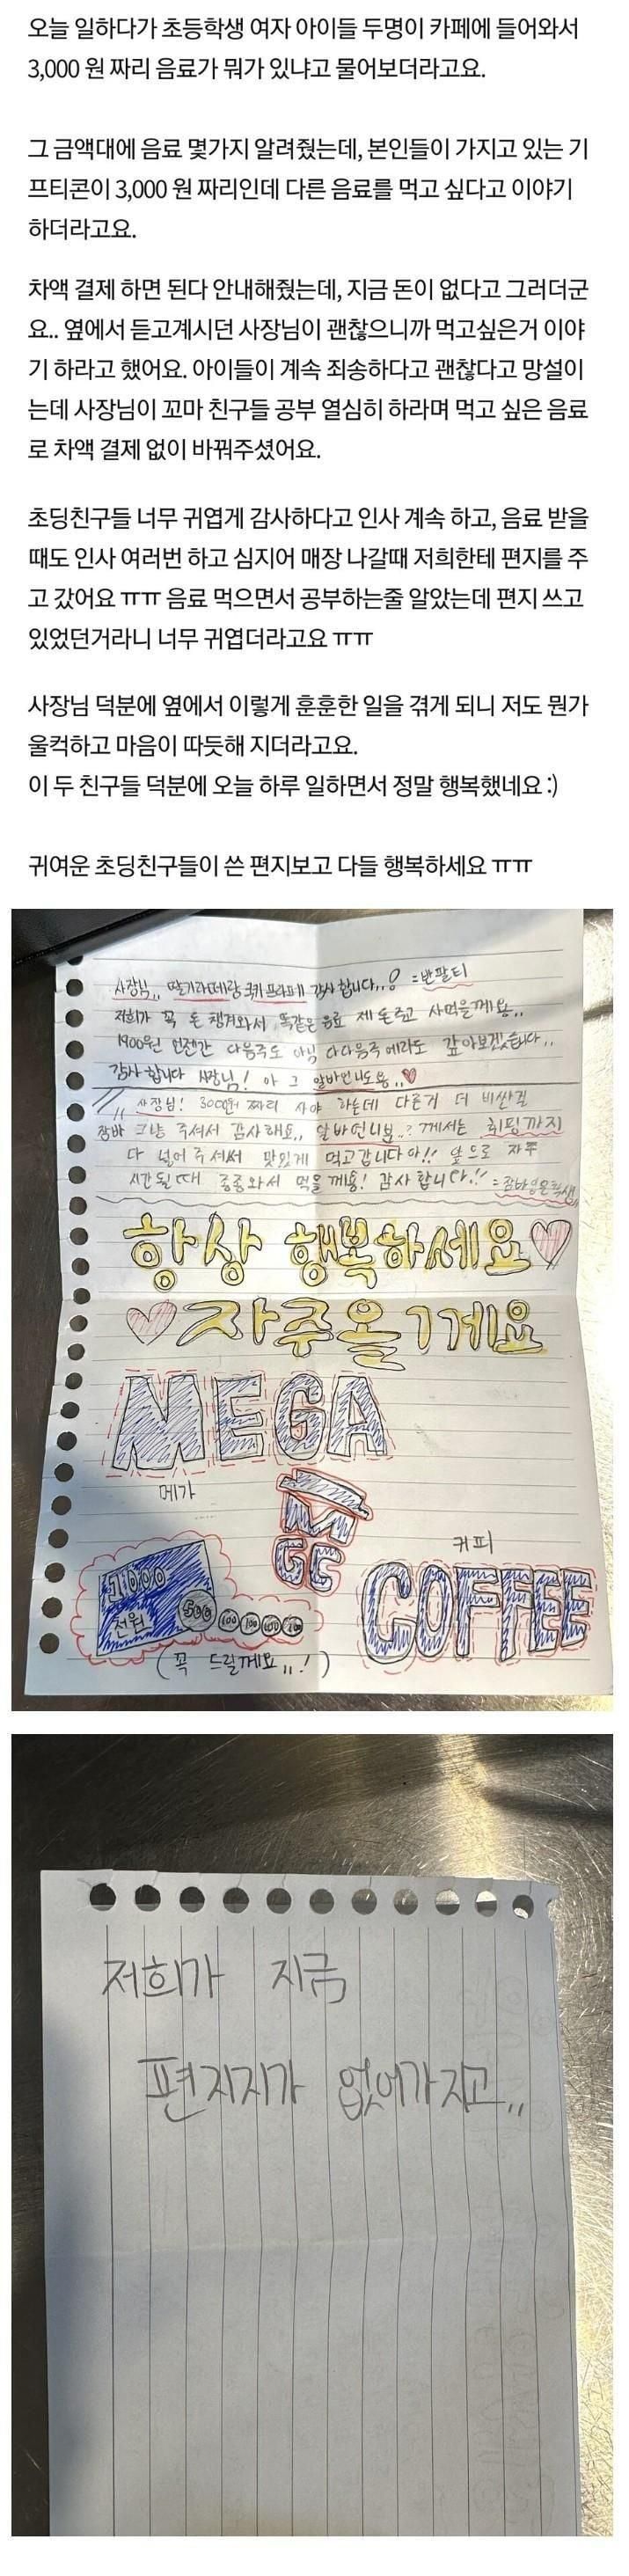 오늘 일하다가 초등학생 여자 아이들 두명이 카페에 들어와서
3,000 원 짜리 음료가 뭐가 있냐고 물어보더라고요.
그 금액대에 음료 몇가지 알려줬는데, 본인들이 가지고 있는 기
프티콘이 3,000 원 짜리인데 다른 음료를 먹고 싶다고 이야기
하더라고요.
차액 결제 하면 된다 안내해줬는데, 지금 돈이 없다고 그러더군
요.. 옆에서 듣고계시던 사장님이 괜찮으니까 먹고싶은거 이야
기 하라고 했어요. 아이들이 계속 죄송하다고 괜찮다고 망설이
는데 사장님이 꼬마 친구들 공부 열심히 하라며 먹고 싶은 음료
로 차액 결제 없이 바꿔주셨어요.
초딩친구들 너무 귀엽게 감사하다고 인사 계속 하고, 음료 받을
때도 인사 여러번 하고 심지어 매장 나갈때 저희한테 편지를 주
고 갔어요 ㅠㅠ 음료 먹으면서 공부하는줄 알았는데 편지 쓰고
있었던거라니 너무 귀엽더라고요 ㅠㅠ
사장님 덕분에 옆에서 이렇게 훈훈한 일을 겪게 되니 저도 뭔가
울컥하고 마음이 따듯해 지더라고요.
이 두 친구들 덕분에 오늘 하루 일하면서 정말 행복했네요 :)
귀여운 초딩친구들이 쓴 편지보고 다들 행복하세요 ㅠㅠ
사장님,, 딸기라떼랑 쿠키프라페 감사합니다..! =반팔티
저희가 꼭 돈 챙겨와서 똑같은 음료 제 돈주고 사먹을께용..
1900원 언젠간 다음주도 아님 다다음주에라도 갚아보겠습니다..
감사합니다 사장님! 아 그 알바언니도용..♥
사장님! 3000원 짜리 사야 하는데 다른거 더 비싼걸
그냥 주셔서 감사해요.. 알바언니분..? 께서는 휘핑까지
다 넣어 주셔서 맛있게 먹고갑니다아!! 앞으로 자주
시간될때 종종와서 먹을께용! 감사합니다!!
항상 행복하세요♡
♡자주올게요
MEGA
메가
M
GC
커피
COFFEE
1000
천원
500 100 100 100 100
(꼭 드릴께요,,!)
저희가 지금
편지지가 없어가지고..